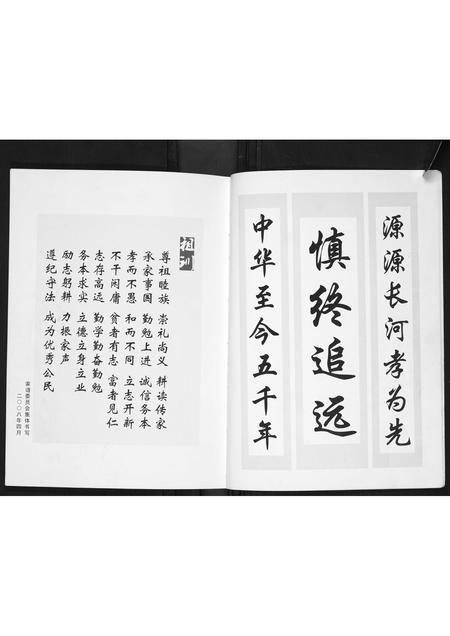 源源长河孝为先
慎终追远
中华至今五千年
祖训
尊祖睦族 崇礼尚义 耕读传家
承家事国 勤勉上进 诚信务本
孝而不愚 和而不同 立志开新
不干闲庸 贫者有志 富者见仁
志存高远 勤学勤奋勤勉
务本求实 立德立身立业
励志躬耕 力振家声
遵纪守法 成为优秀公民
家谱委员会集体书写
二〇〇八年四月